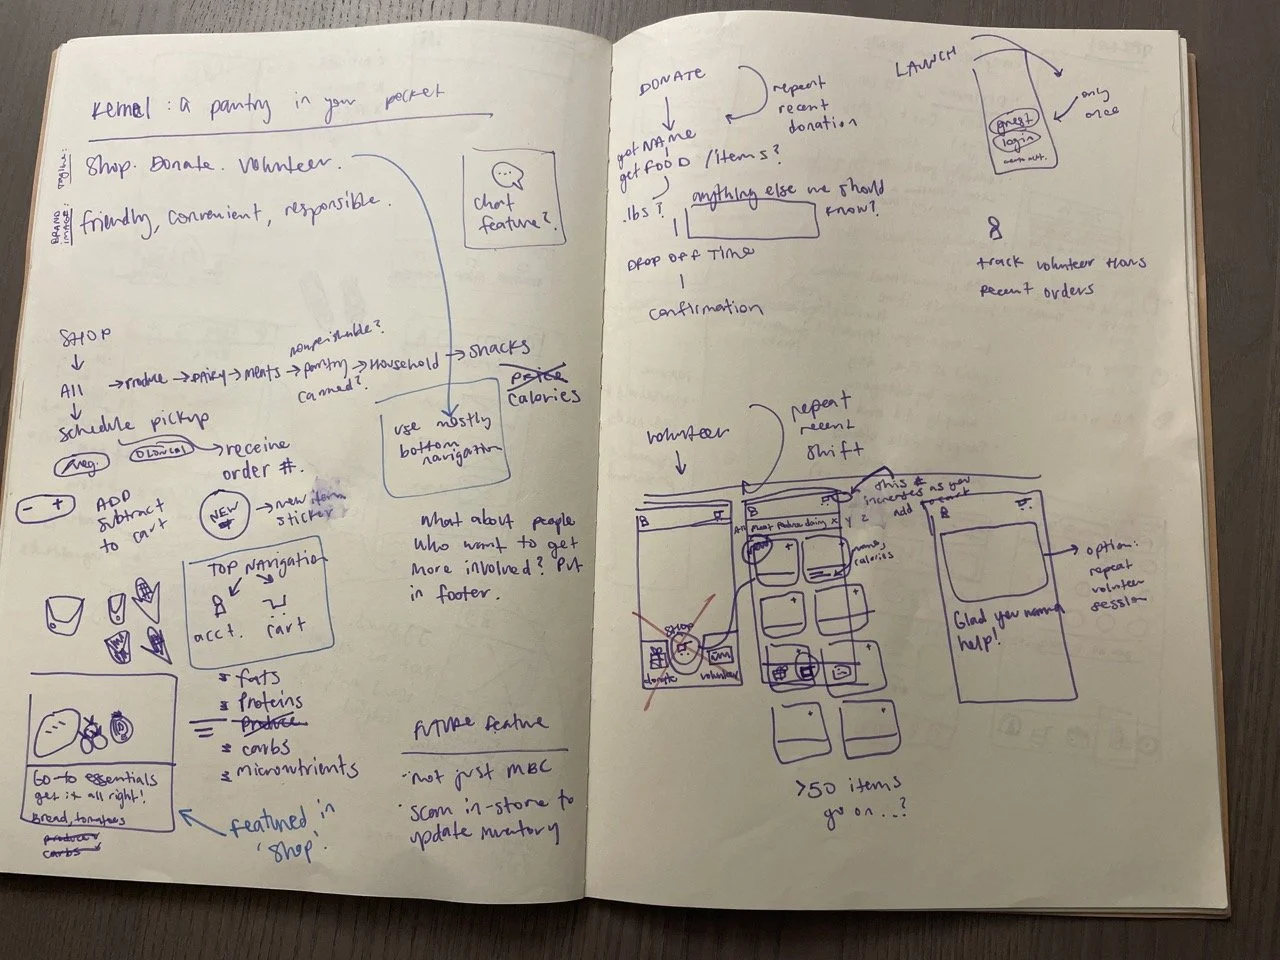 Kernal : a pantry in your pocket
Tagline:
Shop. Donate. Volunteer.
BRAND IMAGE:
friendly, convenient, responsible.
chat
feature?
SHOP
All → produce → DAIRY → meats → pantry → Household → snacks
nonperishable?
canned?
price
calories
schedule pickup
receive
order #.
- +
ADD
subtract
to cart
NEW
new item
sticker
use mostly
bottom
navigation
What about people
who want to get
more involved? Put
in footer.
TOP NAVIGATION
acct.
cart
fats
proteins
produce
carbs
micronutrients
Go-to essentials
get it all right!
Bread, tomatoes
carbs
featured in
'shop'.
FUTURE feature
- not just MBC
scan in-store to
update inventory
DONATE
repeat
recent
donation
get NAME
get FOOD / items?
.lbs?
anything else we should
know?
DROP OFF TIME
confirmation
LAUNCH
guest
login
only
once
track volunteer hours
recent orders
volunteer
repeat
recent
shift
this # increases as you
add to cart
meat produce dairy
new
+
name,
calories
SHOP
donate
volunteer
>50 items
go on...?
Glad you wanna
help!
option:
repeat
volunteer
session